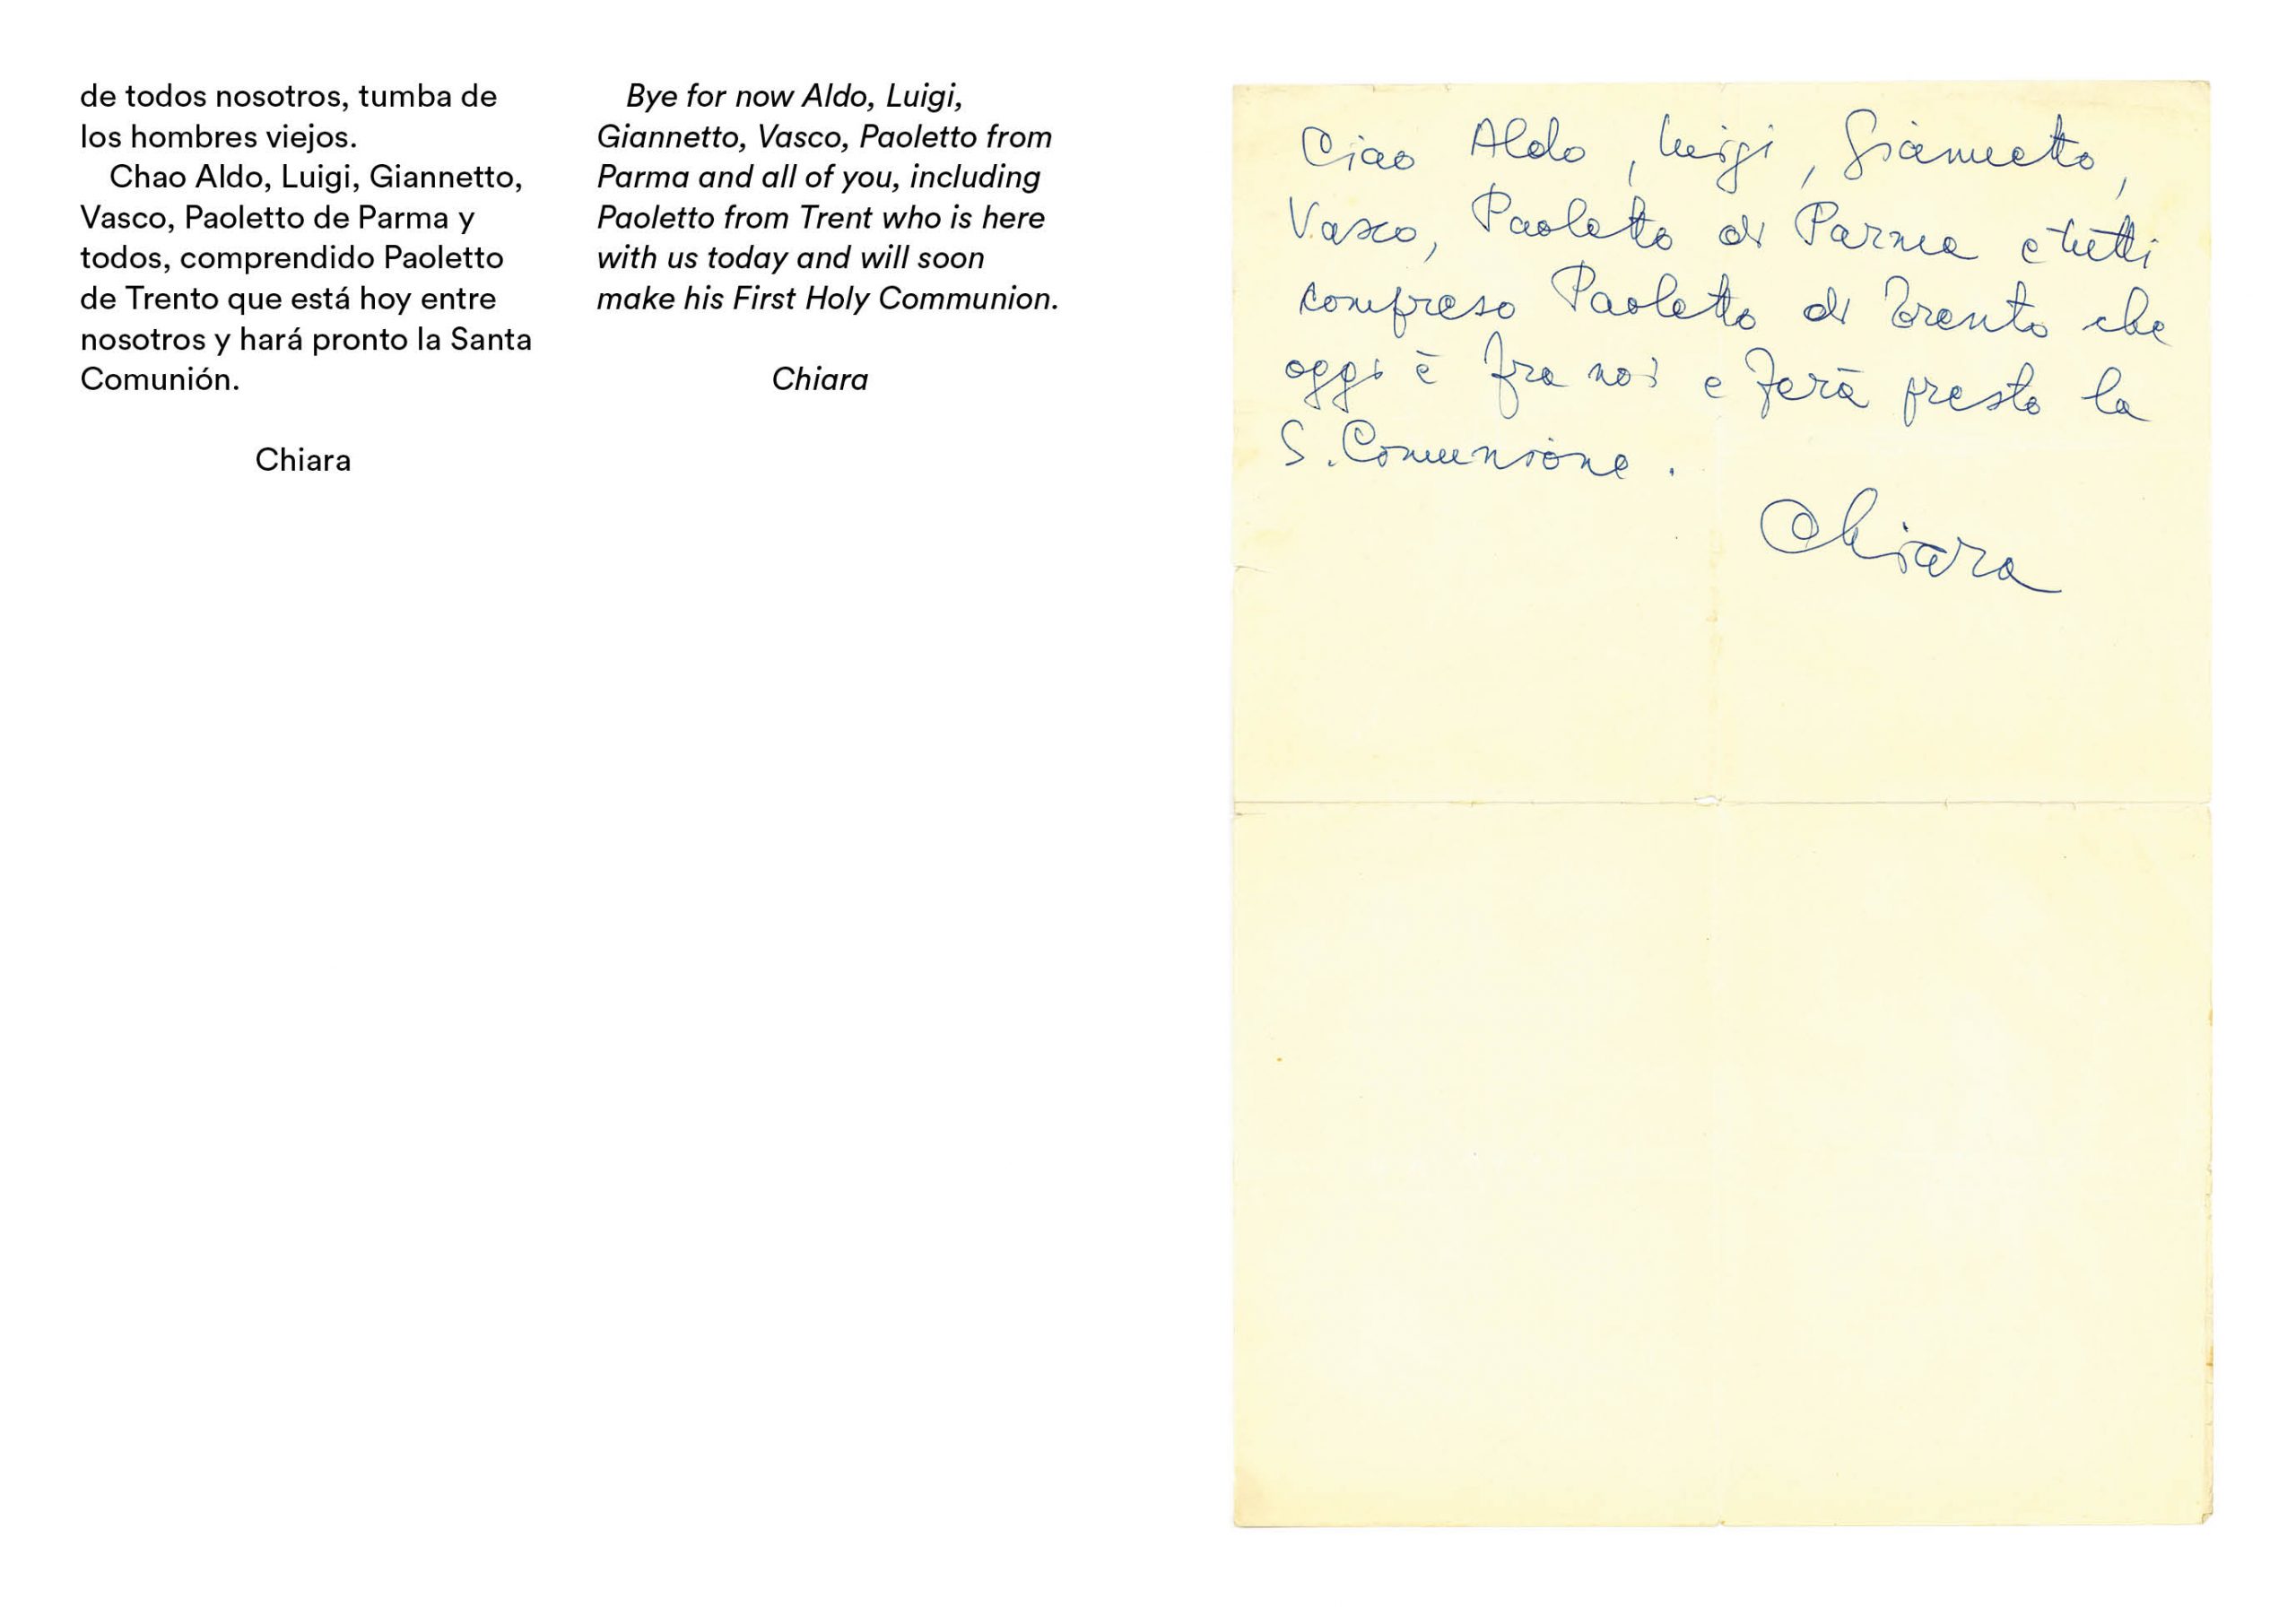 de todos nosotros, tumba de
los hombres viejos.
Chao Aldo, Luigi, Giannetto,
Vasco, Paoletto de Parma y
todos, comprendido Paoletto
de Trento que está hoy entre
nosotros y hará pronto la Santa
Comunión.
Chiara
Bye for now Aldo, Luigi,
Giannetto, Vasco, Paoletto from
Parma and all of you, including
Paoletto from Trent who is here
with us today and will soon
make his First Holy Communion.
Chiara
Ciao Aldo, Luigi, Giannetto,
Vasco, Paoletto di Parma e tutti
compreso Paoletto di Trento che
oggi è fra noi e farà presto la
S. Comunione.
Chiara